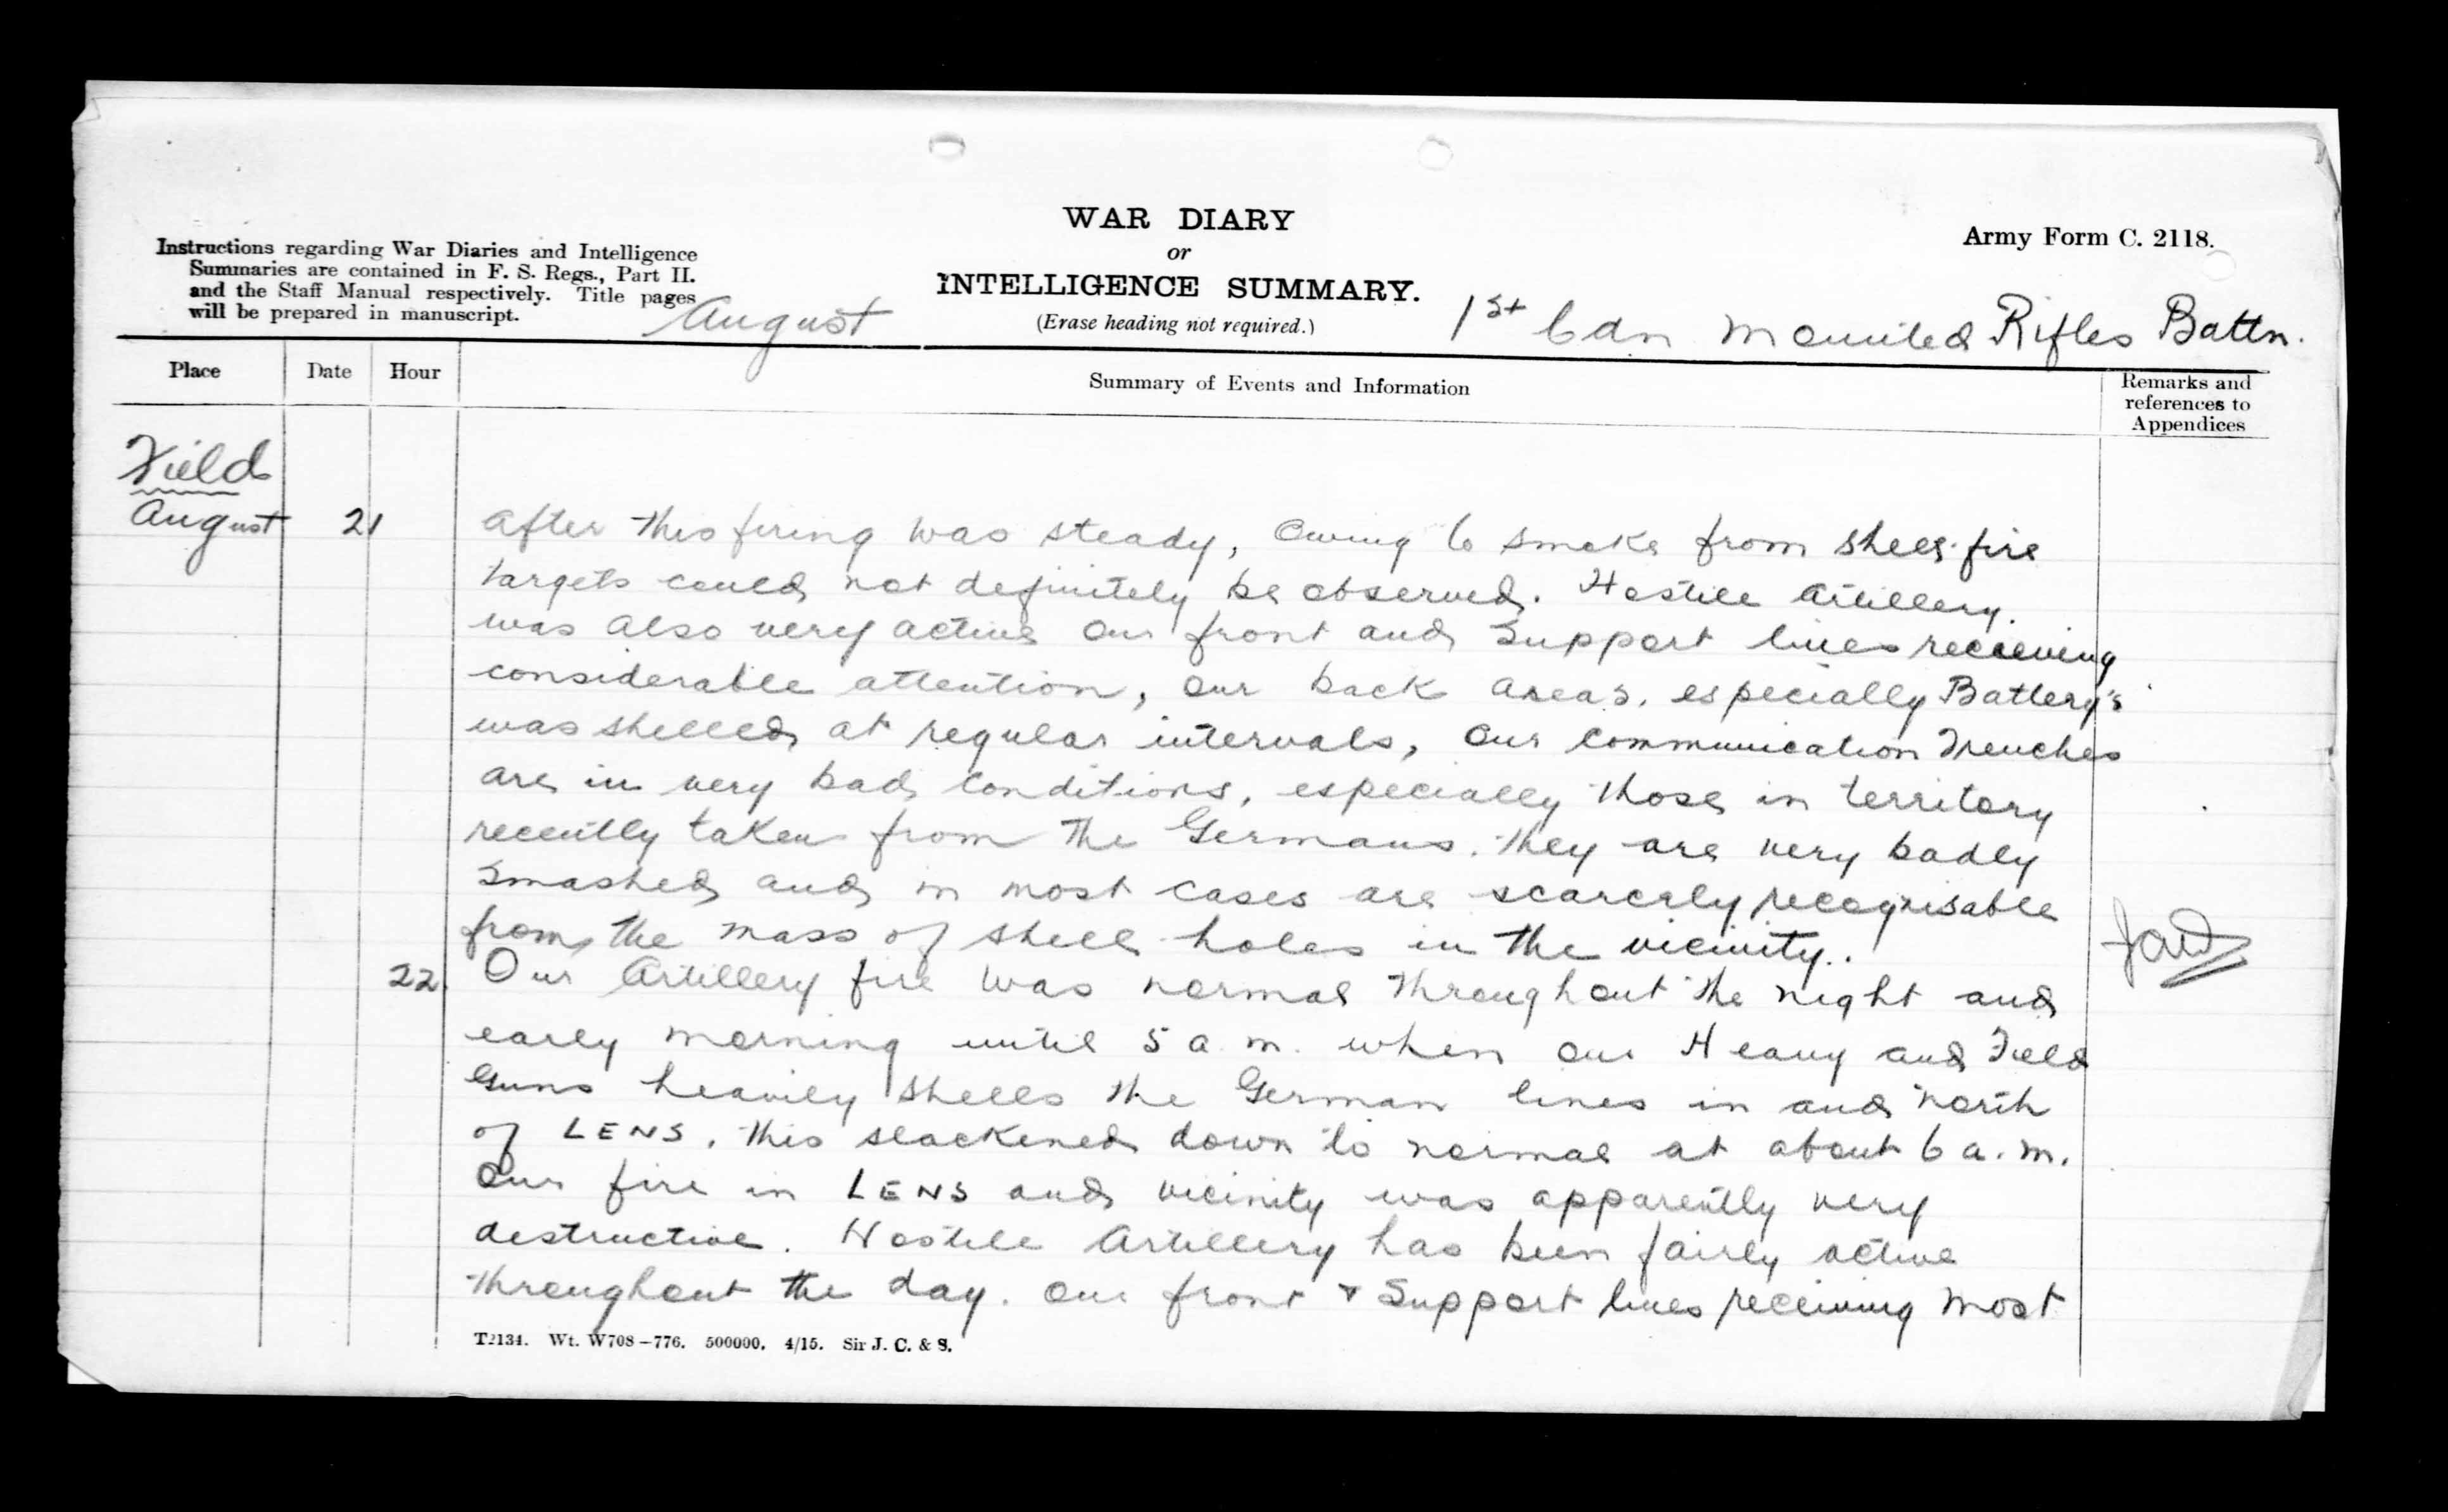 WAR DIARY
or
INTELLIGENCE SUMMARY.
(Erase heading not required.)
Army Form C. 2118.
Instructions regarding War Diaries and Intelligence
Summaries are contained in F. S. Regs., Part II.
and the Staff Manual respectively. Title pages
will be prepared in manuscript.
August
1st Cdn Mounted Rifles Battn.
Place Date Hour Summary of Events and Information Remarks and
references to
Appendices
Field
August 21 after this firing was steady, Owing to smoke from shell fire
targets could not definitely be observed. Hostile Artillery
was also very active our front and Support lines receiving
considerable attention, our back areas, especially Battery's
was shelled at regular intervals, our communication Trenches
are in very bad conditions, especially those in territory
recently taken from the Germans. they are very badly
smashed and in most cases are scarcely recognisable
from the mass of shell holes in the vicinity.
22 Our Artillery fire was normal throughout the night and
early morning until 5 a.m. when our Heavy and Field
Guns heavily shells the German lines in and north
of LENS, this slackened down to normal at about 6 a.m.
Our fire in LENS and vicinity was apparently very
destructive. Hostile Artillery has been fairly active
throughout the day. our front & Support lines receiving most
T2134. Wt. W708-776. 500000. 4/15. Sir J. C. & S.